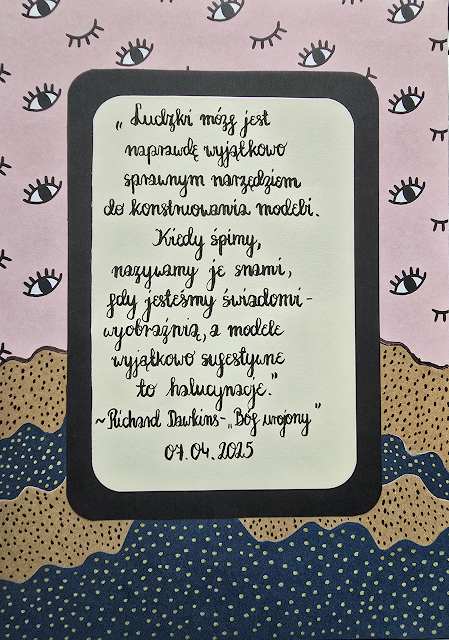 „Ludzki mózg jest
naprawdę wyjątkowo
sprawnym narzędziem
do konstruowania modeli.
Kiedy śpimy,
nazywamy je snami,
gdy jesteśmy świadomi -
wyobraźnią, a modele
wyjątkowo sugestywne
to halucynacje."
~Richard Dawkins - „Bóg urojony"
07.04.2025